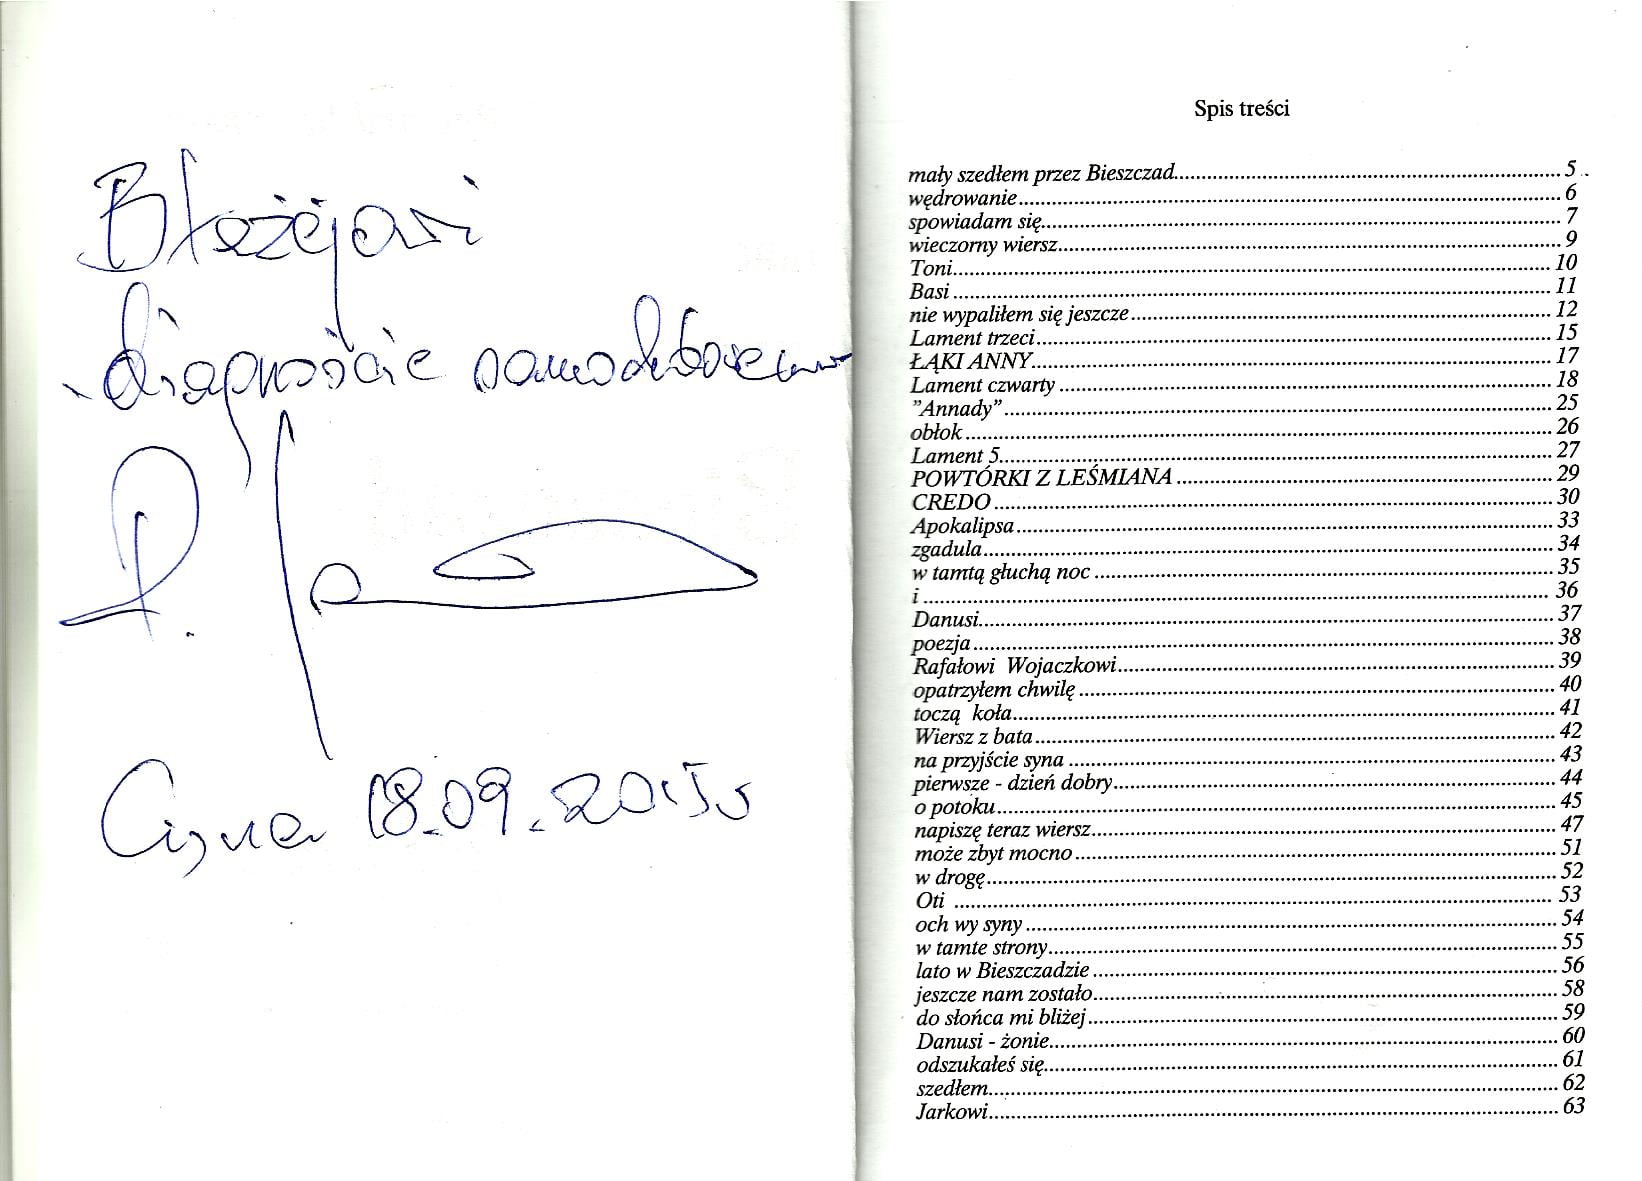 Błażejowi
diagnoście samochodowemu
Cisna 18.09.2015r
Spis treści
mały szedłem przez Bieszczad........ 5
wędrowanie........ 6
spowiadam się........ 7
wieczorny wiersz........ 9
Toni........ 10
Basi........ 11
nie wypaliłem się jeszcze........ 12
Lament trzeci........ 15
ŁĄKI ANNY........ 17
Lament czwarty........ 18
"Annady"........ 25
obłok........ 26
Lament 5........ 27
POWTÓRKI Z LEŚMIANA........ 29
CREDO........ 30
Apokalipsa........ 33
zgadula........ 34
w tamtą głuchą noc........ 35
i........ 36
Danusi........ 37
poezja........ 38
Rafałowi Wojaczkowi........ 39
opatrzyłem chwilę........ 40
toczą koła........ 41
Wiersz z bata........ 42
na przyjście syna........ 43
pierwsze - dzień dobry........ 44
o potoku........ 45
napiszę teraz wiersz........ 47
może zbyt mocno........ 51
w drogę........ 52
Oti........ 53
och wy syny........ 54
w tamte strony........ 55
lato w Bieszczadzie........ 56
jeszcze nam zostało........ 58
do słońca mi bliżej........ 59
Danusi - żonie........ 60
odszukałeś się........ 61
szedłem........ 62
Jarkowi........ 63